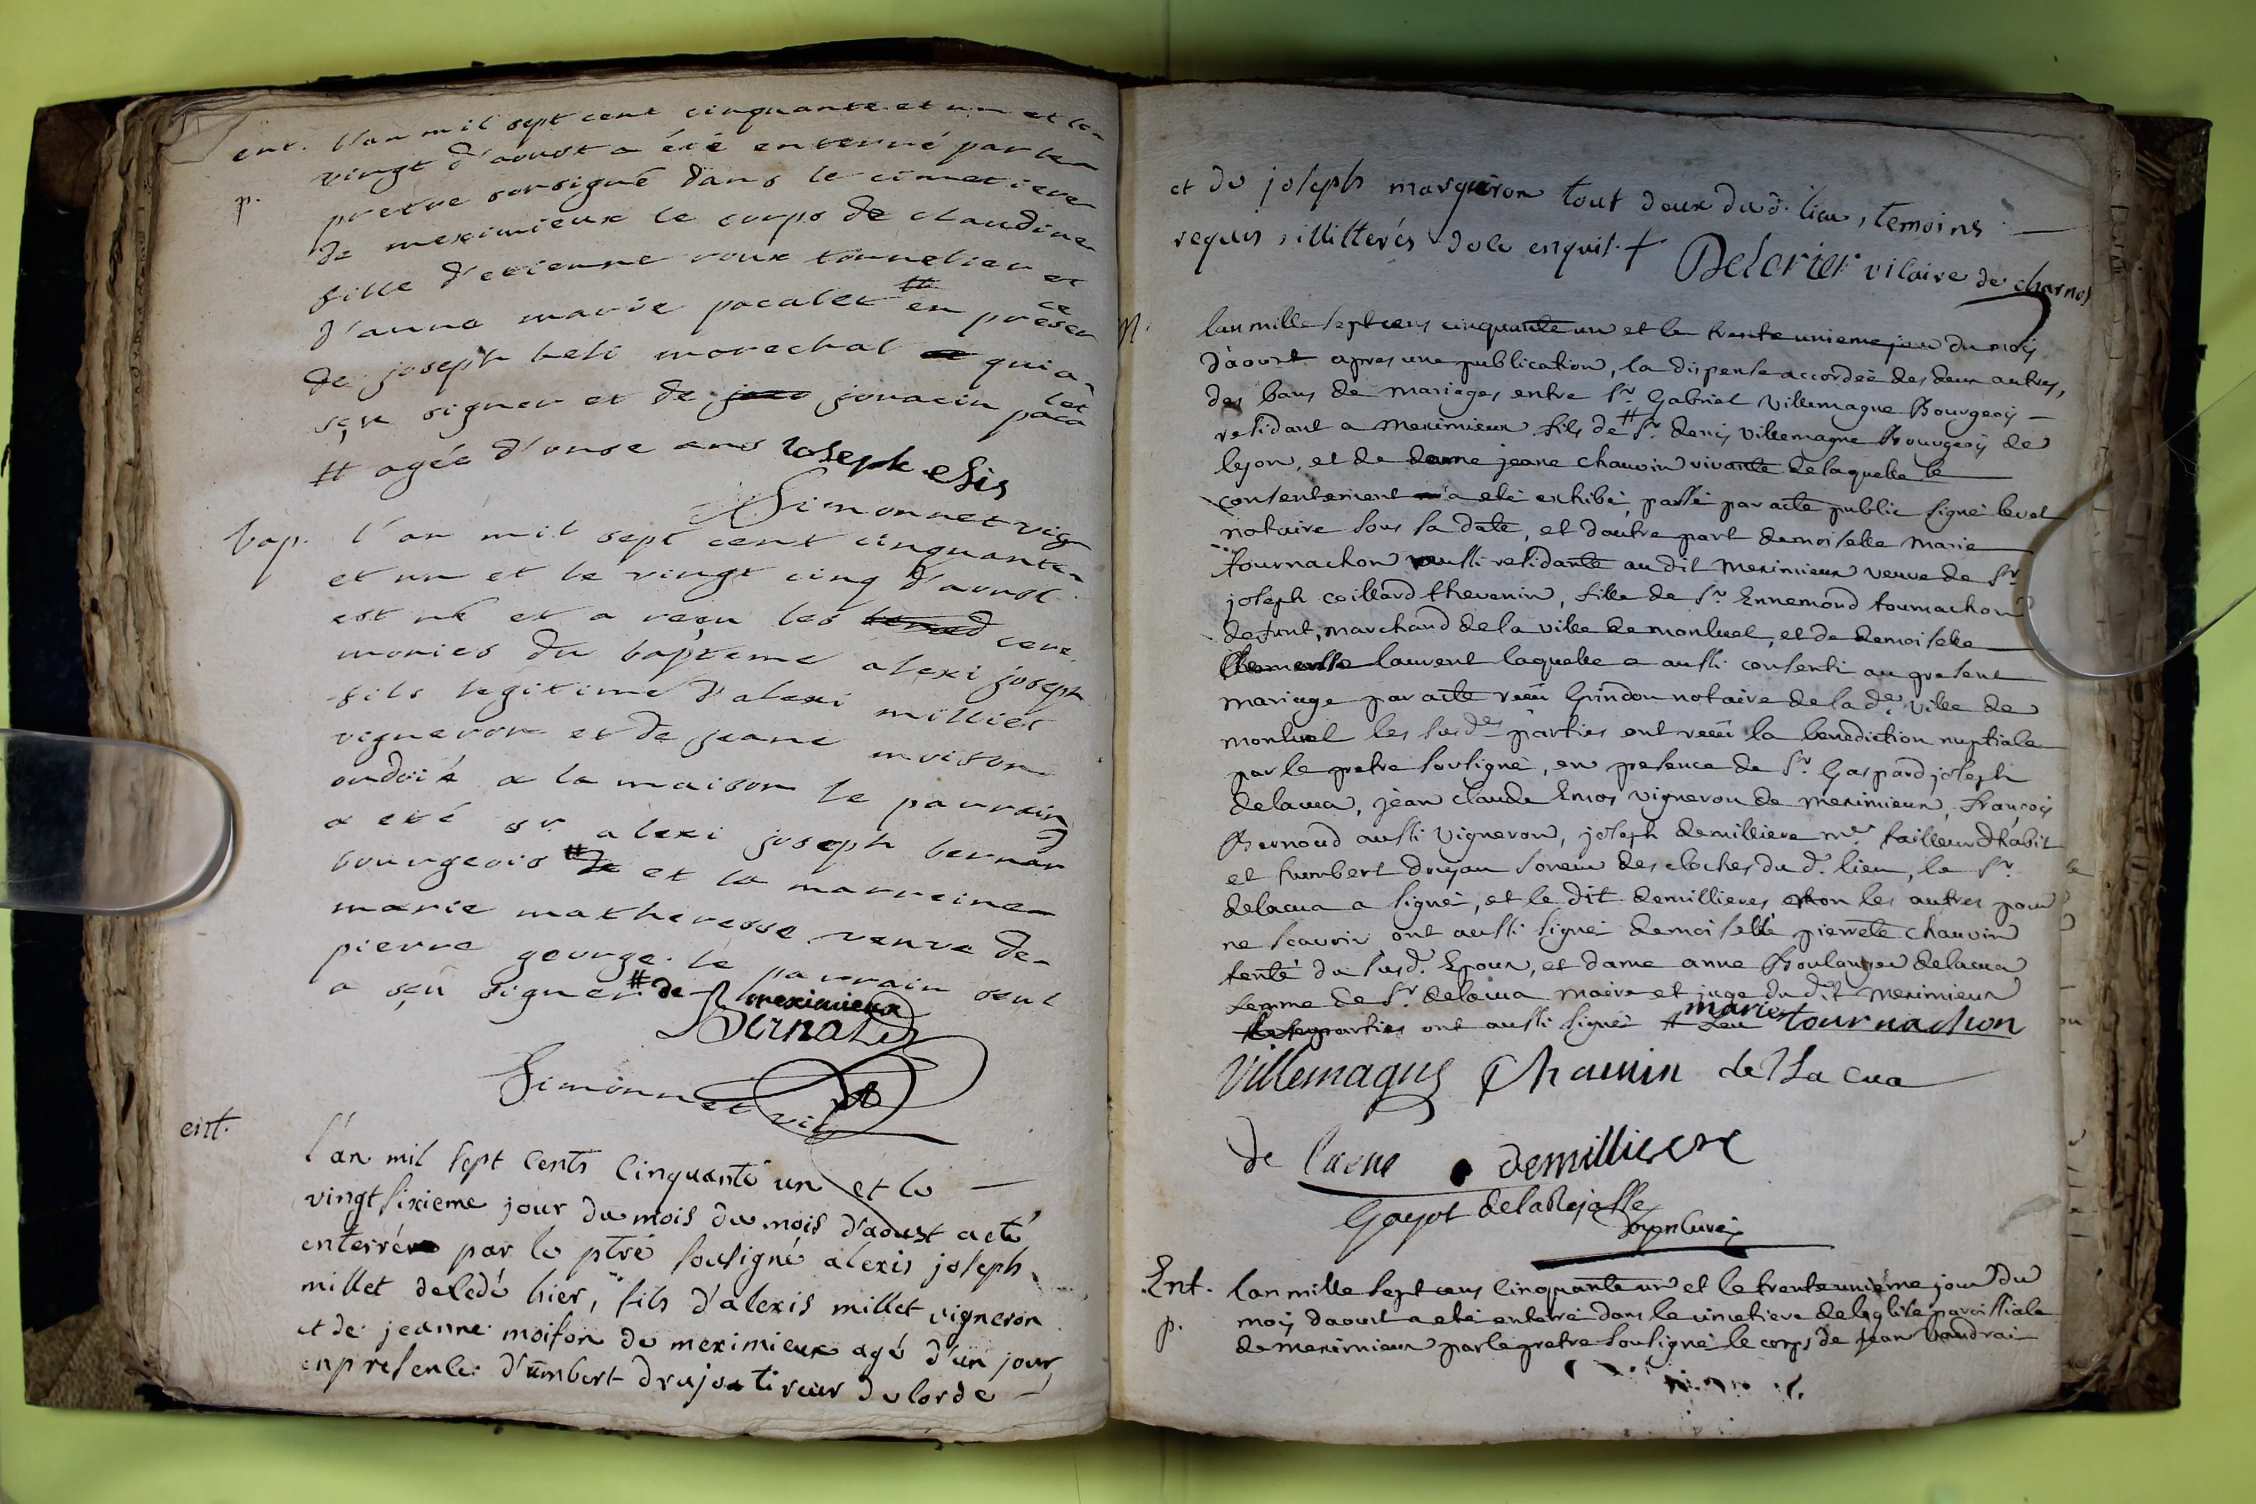 ent. l'an mil sept cent cinquante et un et le
vingt d'aoust a été enterré par le
p. pretre sousigné dans le cimetiere
de meximieux le corps de claudine
fille d'etienne roux tonnelier et
d'anna marie pacalet # en presence
de joseph heli marechal qui a
sçu signer et de jonacin pacalet
# agée d'onse ans Joseph elis
Simonnet vic
bap. l'an mil sept cent cinquante
et un et le vingt cinq d'aoust
est né et a reçu les cere
monies du bapteme alexi joseph
fils legitime d'alexi milliet
vigneron et de jeane moison
ondoié a la maison le parrain
a eté sr. alexi joseph bernard
bourgeois # et la marreine
marie matheresse veuve de
pierre george. le parrain seul
a sçu signer. # de meximieux
Bernard
Simonnet vic
ent. l'an mil sept cents cinquante un et le
vingt sixieme jour du mois du mois d'aoust a eté
enterré par le ptre sousigné alexis joseph
millet decedé hier, fils d'alexis millet vigneron
et de jeanne moison de meximieux agé d'un jour,
en presence d'umbert drujon tireur de corde
et de joseph marguiron tout deux du d. lieu, temoins
requis, illitterés de ce enquit. + Delorier vicaire de charnos
m. lan mille sept cens cinquante un et le trente unieme jour du mois
d'aoust apres une publication, la dispense accordée des deux autres,
des bans de mariages entre sr. Gabriel Villemagne Bourgeois
residant a meximieux fils de # sr. denis villemagne Bourgeois de
lyon, et de dame jeane chauvin vivante de laquelle le
consentement a eté exhibé, passé par acte public signé level
notaire sous sa date, et dautre part demoiselle marie
tournachon aussi residante au dit meximieux veuve de sr.
joseph coillard thevenin, fille de sr. Ennemond tournachon
defunt, marchand de la ville de monluel, et de demoiselle
laurent laquelle a aussi consenti au present
mariage par acte receu Grindon notaire de la de. ville de
monluel les susdes parties ont receu la benediction nuptiale
par le pretre sousigné, en presence de sr. Gaspard joseph
delacua, jean claude Enos vigneron de meximieux, françois
Bernoud aussi vigneron, joseph demilliere me. tailleur d'habit
et humbert drujon soneur des cloches du d. lieu, le sr.
delacua a signé, et le dit demillieres et non les autres pour
ne scavoir ont aussi signé demoiselle pierrete chauvin
tente du susd. Epoux, et dame anne Boulanger delacua
femme de sr. delacua maire et juge du dit meximieux
les parties ont aussi signé # feu marie tournachon
Villemagne Chauvin de La cua
de lacua demilliere
Gayot delaRejasse
doyen curé
Ent. lan mille sept cens cinquante un et le trente unième jour du
p. mois d'aoust a eté enterré dans le cimetiere de leglise paroissiale
de meximieux par le pretre sousigné le corps de jean baudrai